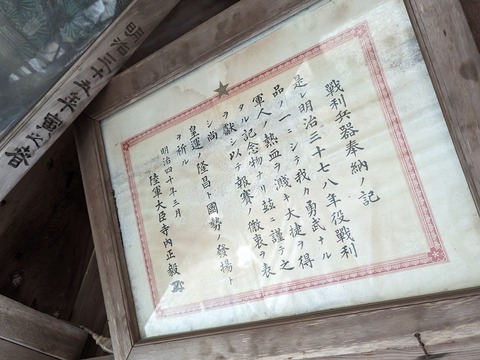 戦利兵器奉納ノ記
是レ明治三十七八年役戦利
品ノ一ニシテ我カ勇武ナル
軍人ノ熱血ヲ濺キ大捷ヲ得
タル記念物ナリ茲ニ謹テ之
ヲ献シ以テ報賽ノ微衷ヲ表
シ尚
皇運ノ隆昌ト國勢ノ發揚ト
ヲ祈ル
明治四十年三月
陸軍大臣寺内正毅
明治三十五年寅之春